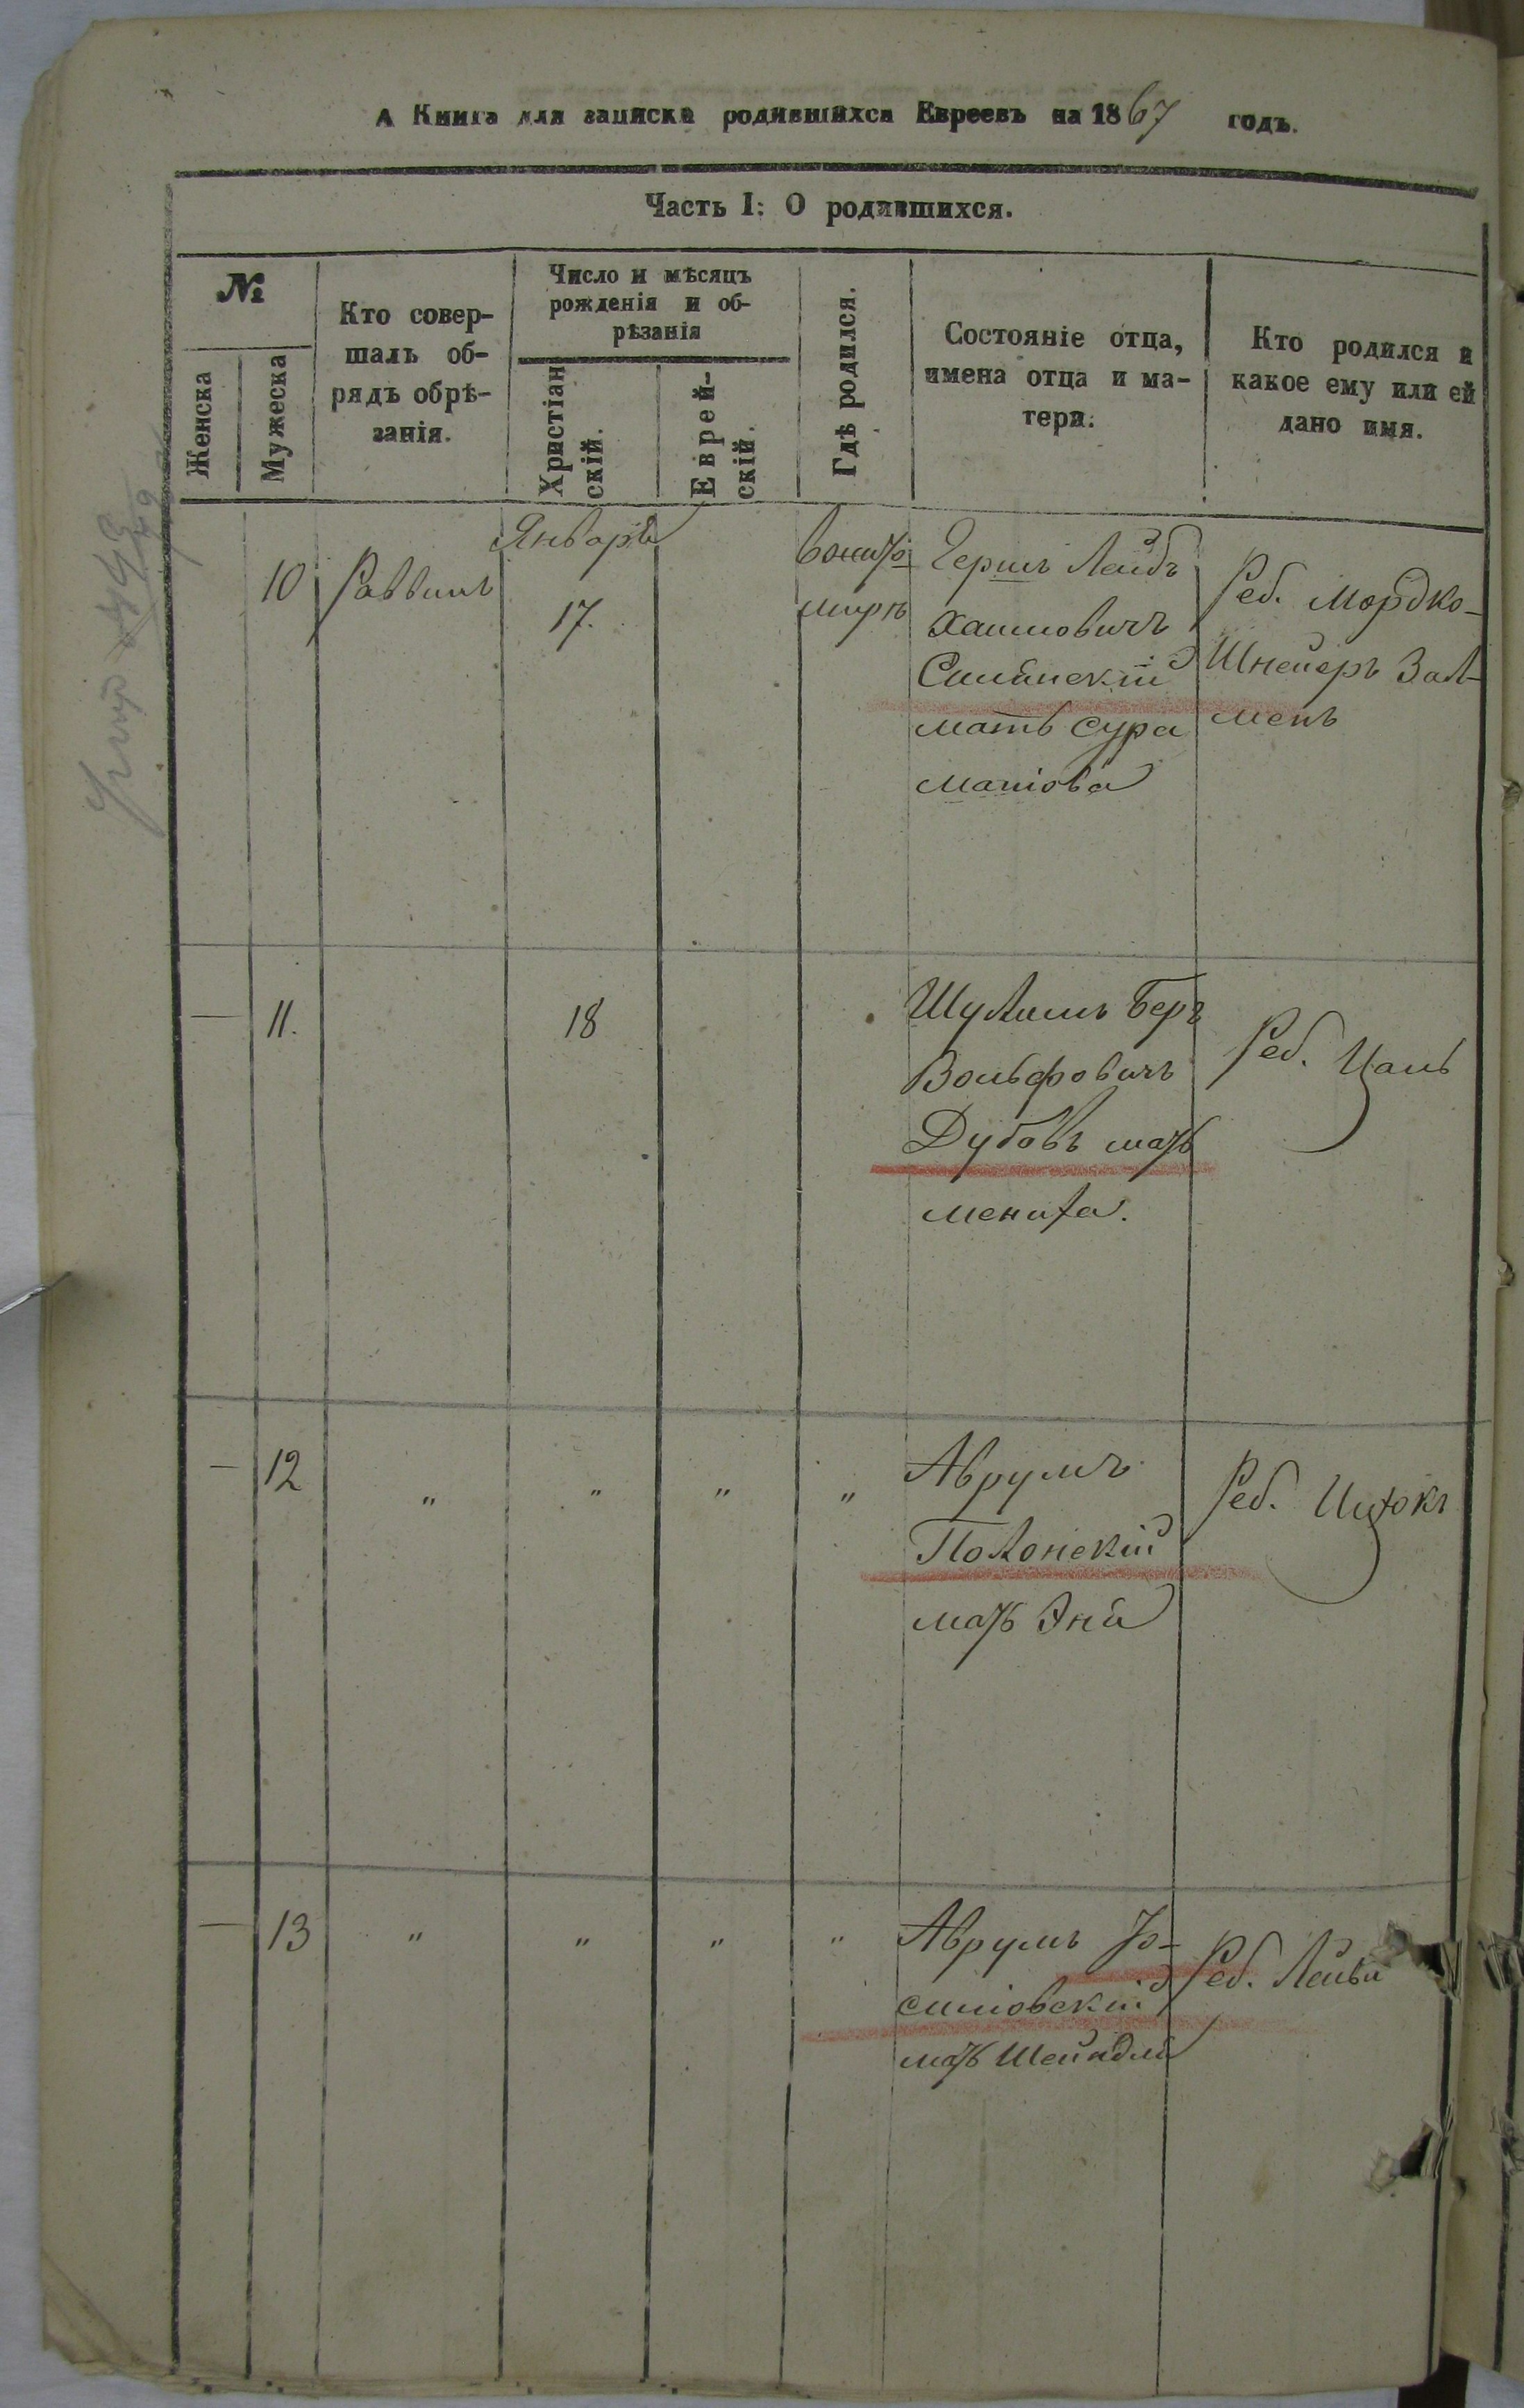 А Книга для записки родившихся Евреевъ на 1867 годъ.
Часть I: О родившихся.
№
Женска
Мужеска
Кто совер-
шалъ об-
рядъ обрѣ-
занія.
Число и мѣсяцъ
рожденія и об-
рѣзанія
Христіан
скій.
Еврей-
скій.
Гдѣ родился.
Состояніе отца,
имена отца и ма-
тери.
Кто родился и
какое ему или ей
дано имя.
10
Раввинъ
Января
17.
Гершъ Лейбъ
Хаимовичъ
мать Сура
Реб. Мордко-
Шнейеръ Зал-
менъ
—
11.
18
Шулимъ Беръ
Вольфовичъ
Дубовъ мать
Мениха.
Реб.
—
12
"
"
"
"
Аврумъ
Полонскій
мать
Реб. Ицхокъ
—
13
"
"
"
"
Аврумъ
мать Шейндля
Реб. Лейви